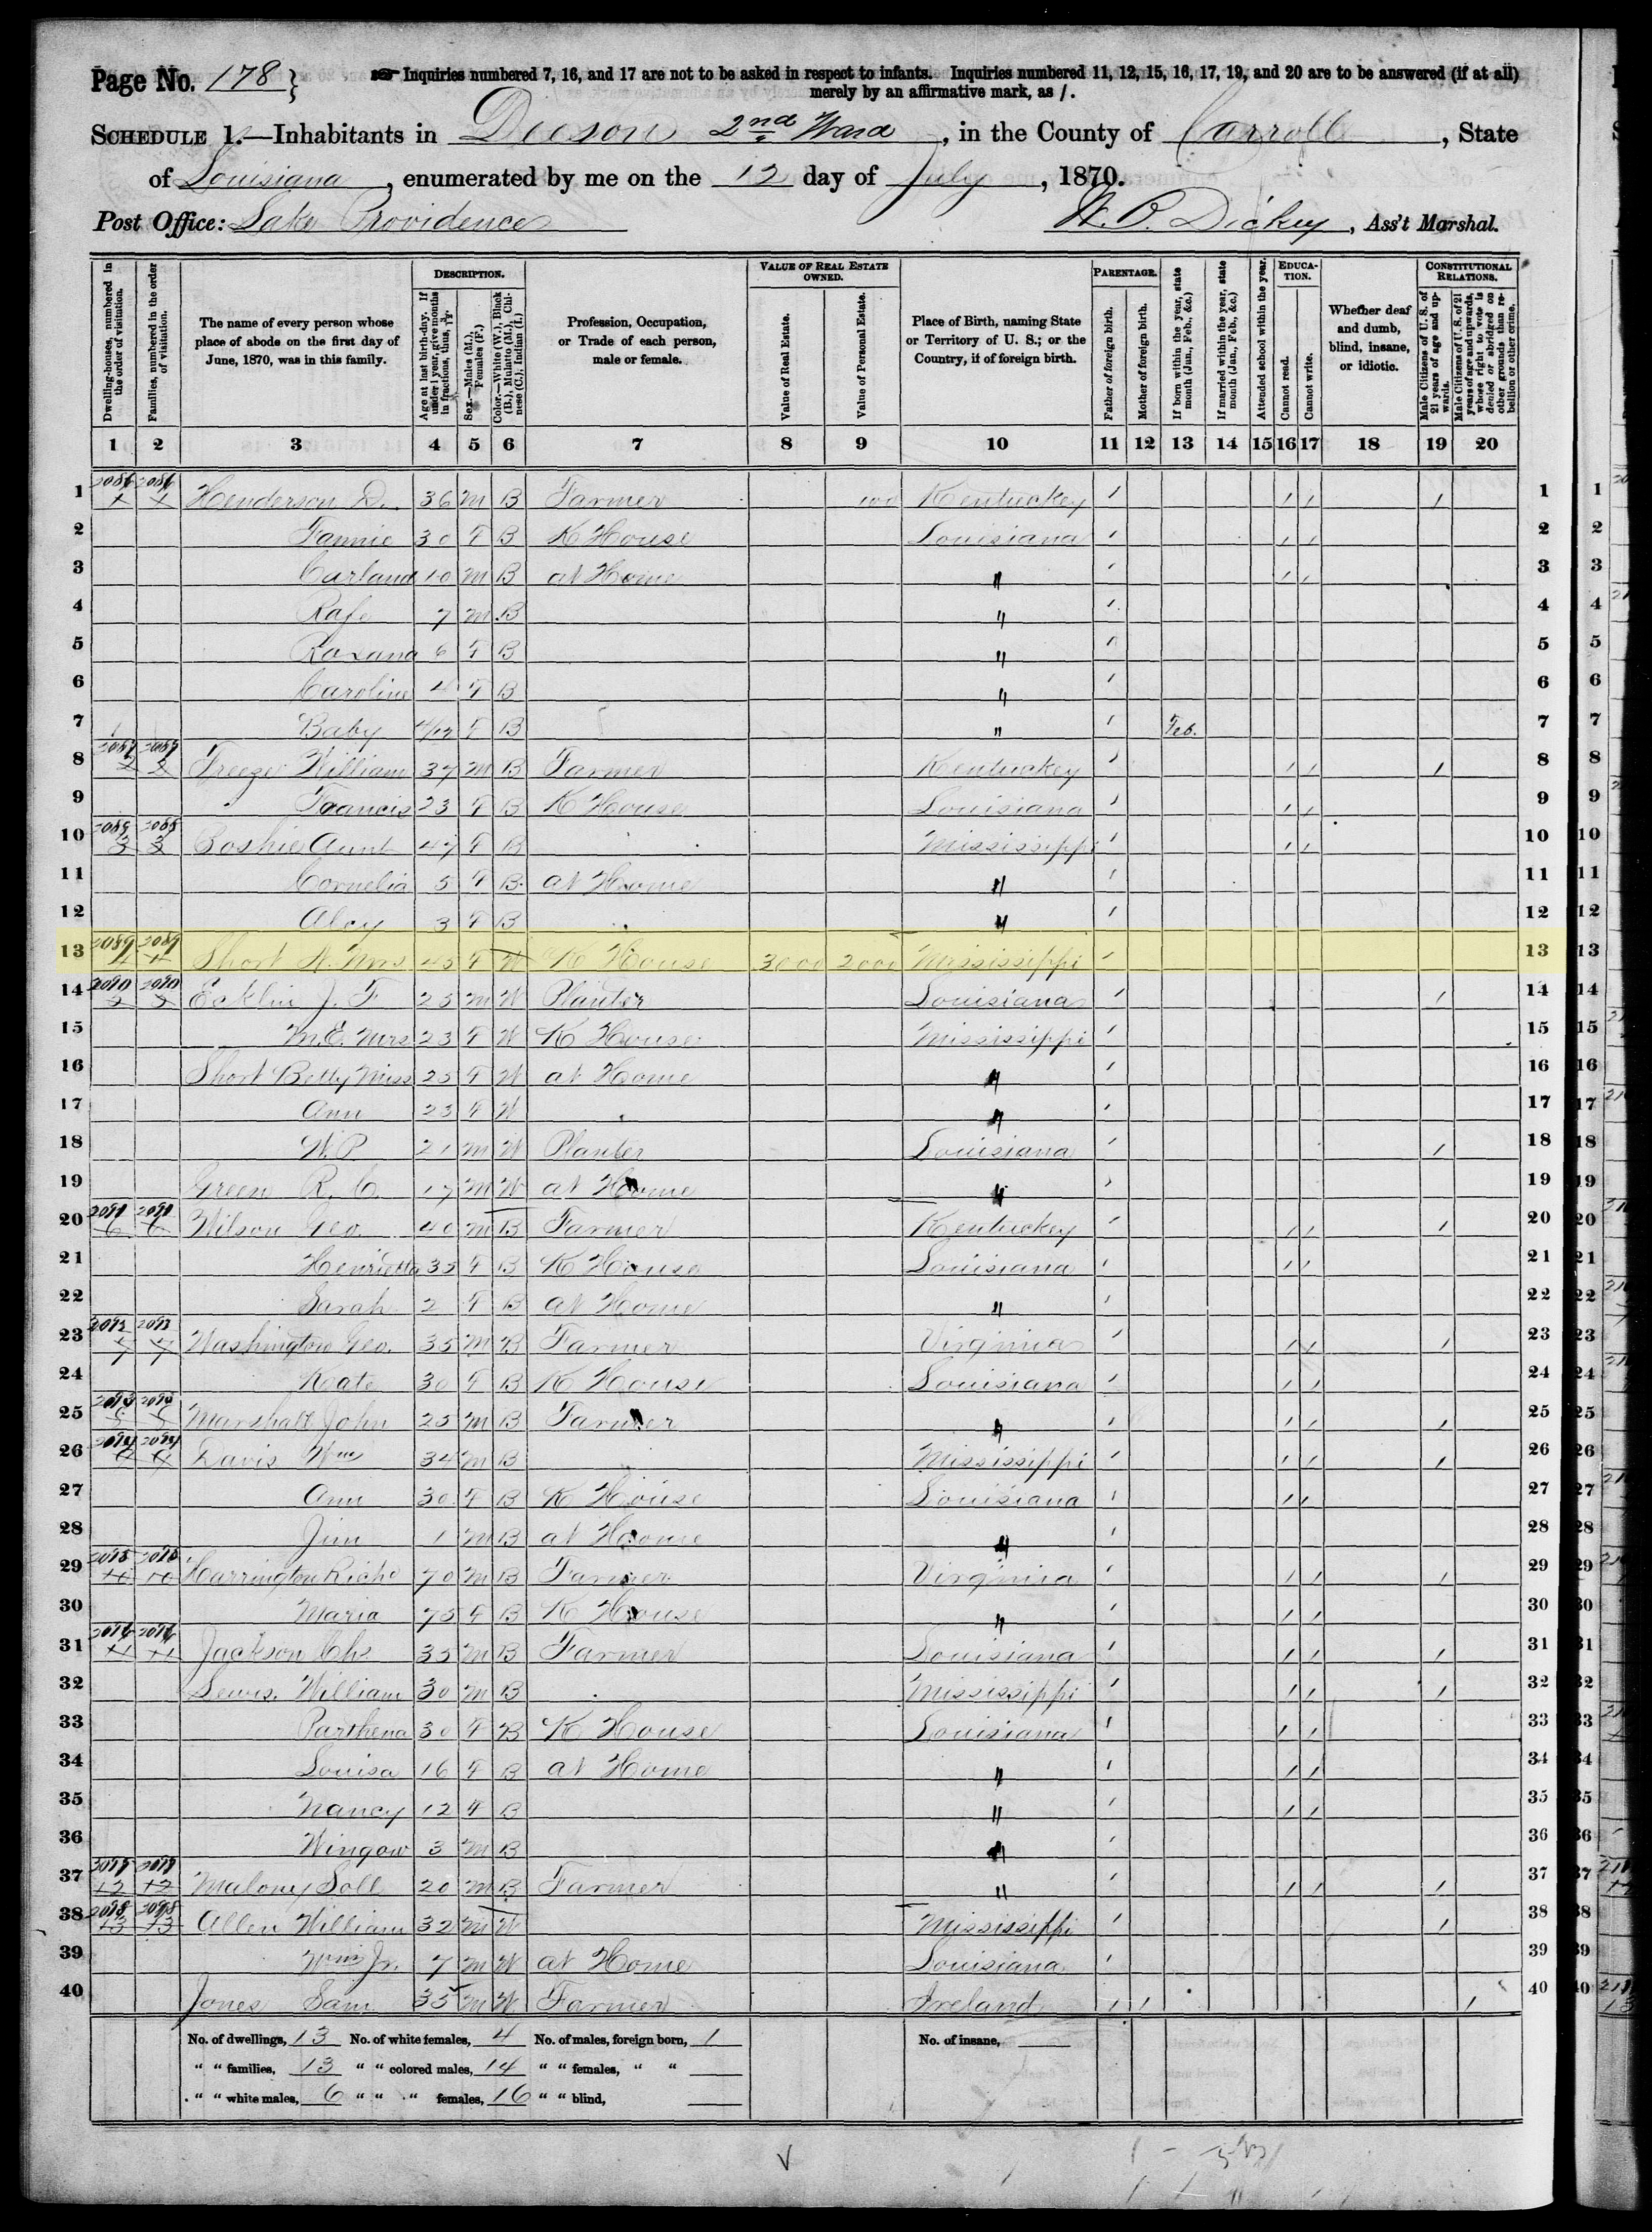 Page No. 178}
Inquiries numbered 7, 16, and 17 are not to be asked in respect to infants. Inquiries numbered 11, 12, 15, 16, 17, 19, and 20 are to be answered (if at all)
merely by an affirmative mark, as /.
SCHEDULE 1.—Inhabitants in Deeson 2nd Ward, in the County of Carroll, State
of Louisiana, enumerated by me on the 12 day of July, 1870.
Post Office: Lake Providence W. B. Dickey, Ass't Marshal.
Dwelling-houses, numbered in the order of visitation.
Families, numbered in the order of visitation.
The name of every person whose place of abode on the first day of June, 1870, was in this family.
DESCRIPTION.
Age at last birth-day. If under 1 year, give months in fractions, thus, 3/12
Sex.—Males (M.), Females (F.)
Color.—White (W.), Black (B.), Mulatto (M.), Chinese (C.), Indian (I.)
Profession, Occupation, or Trade of each person, male or female.
VALUE OF REAL ESTATE OWNED.
Value of Real Estate.
Value of Personal Estate.
Place of Birth, naming State or Territory of U. S.; or the Country, if of foreign birth.
PARENTAGE.
Father of foreign birth.
Mother of foreign birth.
If born within the year, state month (Jan., Feb., &c.)
If married within the year, state month (Jan., Feb., &c.)
Attended school within the year.
EDUCATION.
Cannot read.
Cannot write.
Whether deaf and dumb, blind, insane, or idiotic.
CONSTITUTIONAL RELATIONS.
Male Citizens of U. S. of 21 years of age and upwards.
Male Citizens of U. S. of 21 years of age and upwards, whose right to vote is denied or abridged on other grounds than rebellion or other crime.
1 2 3 4 5 6 7 8 9 10 11 12 13 14 15 16 17 18 19 20
1 2086 2086 Henderson D. 36 M B Farmer 100 Kentuckey / / / / 1
2 Fannie 30 F B K House Louisiana / / / 2
3 Garland 10 M B at Home " / / / 3
4 Rafe 7 M B " / 4
5 Roxana 6 F B " / 5
6 Caroline 4 F B " / 6
7 Baby 4/12 F B " / Feb. 7
8 2087 2087 Freeze William 37 M B Farmer Kentuckey / / / / 8
9 Francis 23 F B K House Louisiana / / / 9
10 2088 2088 Aunt 47 F B Mississippi / / / 10
11 Cornelia 5 F B at Home " / 11
12 Alcy 3 F B " / 12
13 2089 2089 Short A. Mrs 45 F W K House 3000 2000 Mississippi / 13
14 2090 2090 Ecklin J. F 25 M W Planter Louisiana / / 14
15 M.E. Mrs 23 F W K House Mississippi / 15
16 Short Betty Miss 25 F W at Home " / 16
17 Ann 23 F W " / 17
18 W.P. 21 M W Planter Louisiana / / 18
19 Green R. C. 17 M W at Home " / 19
20 2091 2091 Wilson Geo. 40 M B Farmer Kentuckey / / / / 20
21 Henrietta 35 F B K House Louisiana / / / 21
22 Sarah 2 F B at Home " / 22
23 2092 2092 Washington Geo. 35 M B Farmer Virginia / / / / 23
24 Kate 30 F B K House Louisiana / / / 24
25 2093 2093 Marshall John 25 M B Farmer " / / / / 25
26 2094 2094 Davis Wm 34 M B Mississippi / / / / 26
27 Ann 30 F B K House Louisiana / / / 27
28 Jim 1 M B at Home " / 28
29 2095 2095 Harrington Richd 70 M B Farmer Virginia / / / / 29
30 Maria 75 F B K House " / / / 30
31 2096 2096 Jackson Chs 35 M B Farmer Louisiana / / / / 31
32 Lewis William 30 M B Mississippi / / / / 32
33 Parthena 30 F B K House Louisiana / / / 33
34 Louisa 16 F B at Home " / / / 34
35 Nancy 12 F B " / / / 35
36 Wingow 3 M B " / 36
37 2097 2097 Malony Soll 20 M B Farmer " / / / / 37
38 2098 2098 Allen William 32 M W Mississippi / / 38
39 Wm Jr. 7 M W at Home Louisiana / 39
40 Jones Sam 35 M W Farmer Ireland / / / 40
No. of dwellings, 13 No. of white females, 4 No. of males, foreign born, 1 No. of insane,
" " families, 13 " " colored males, 14 " " females, " "
" " white males, 6 " " " females, 16 " " blind,